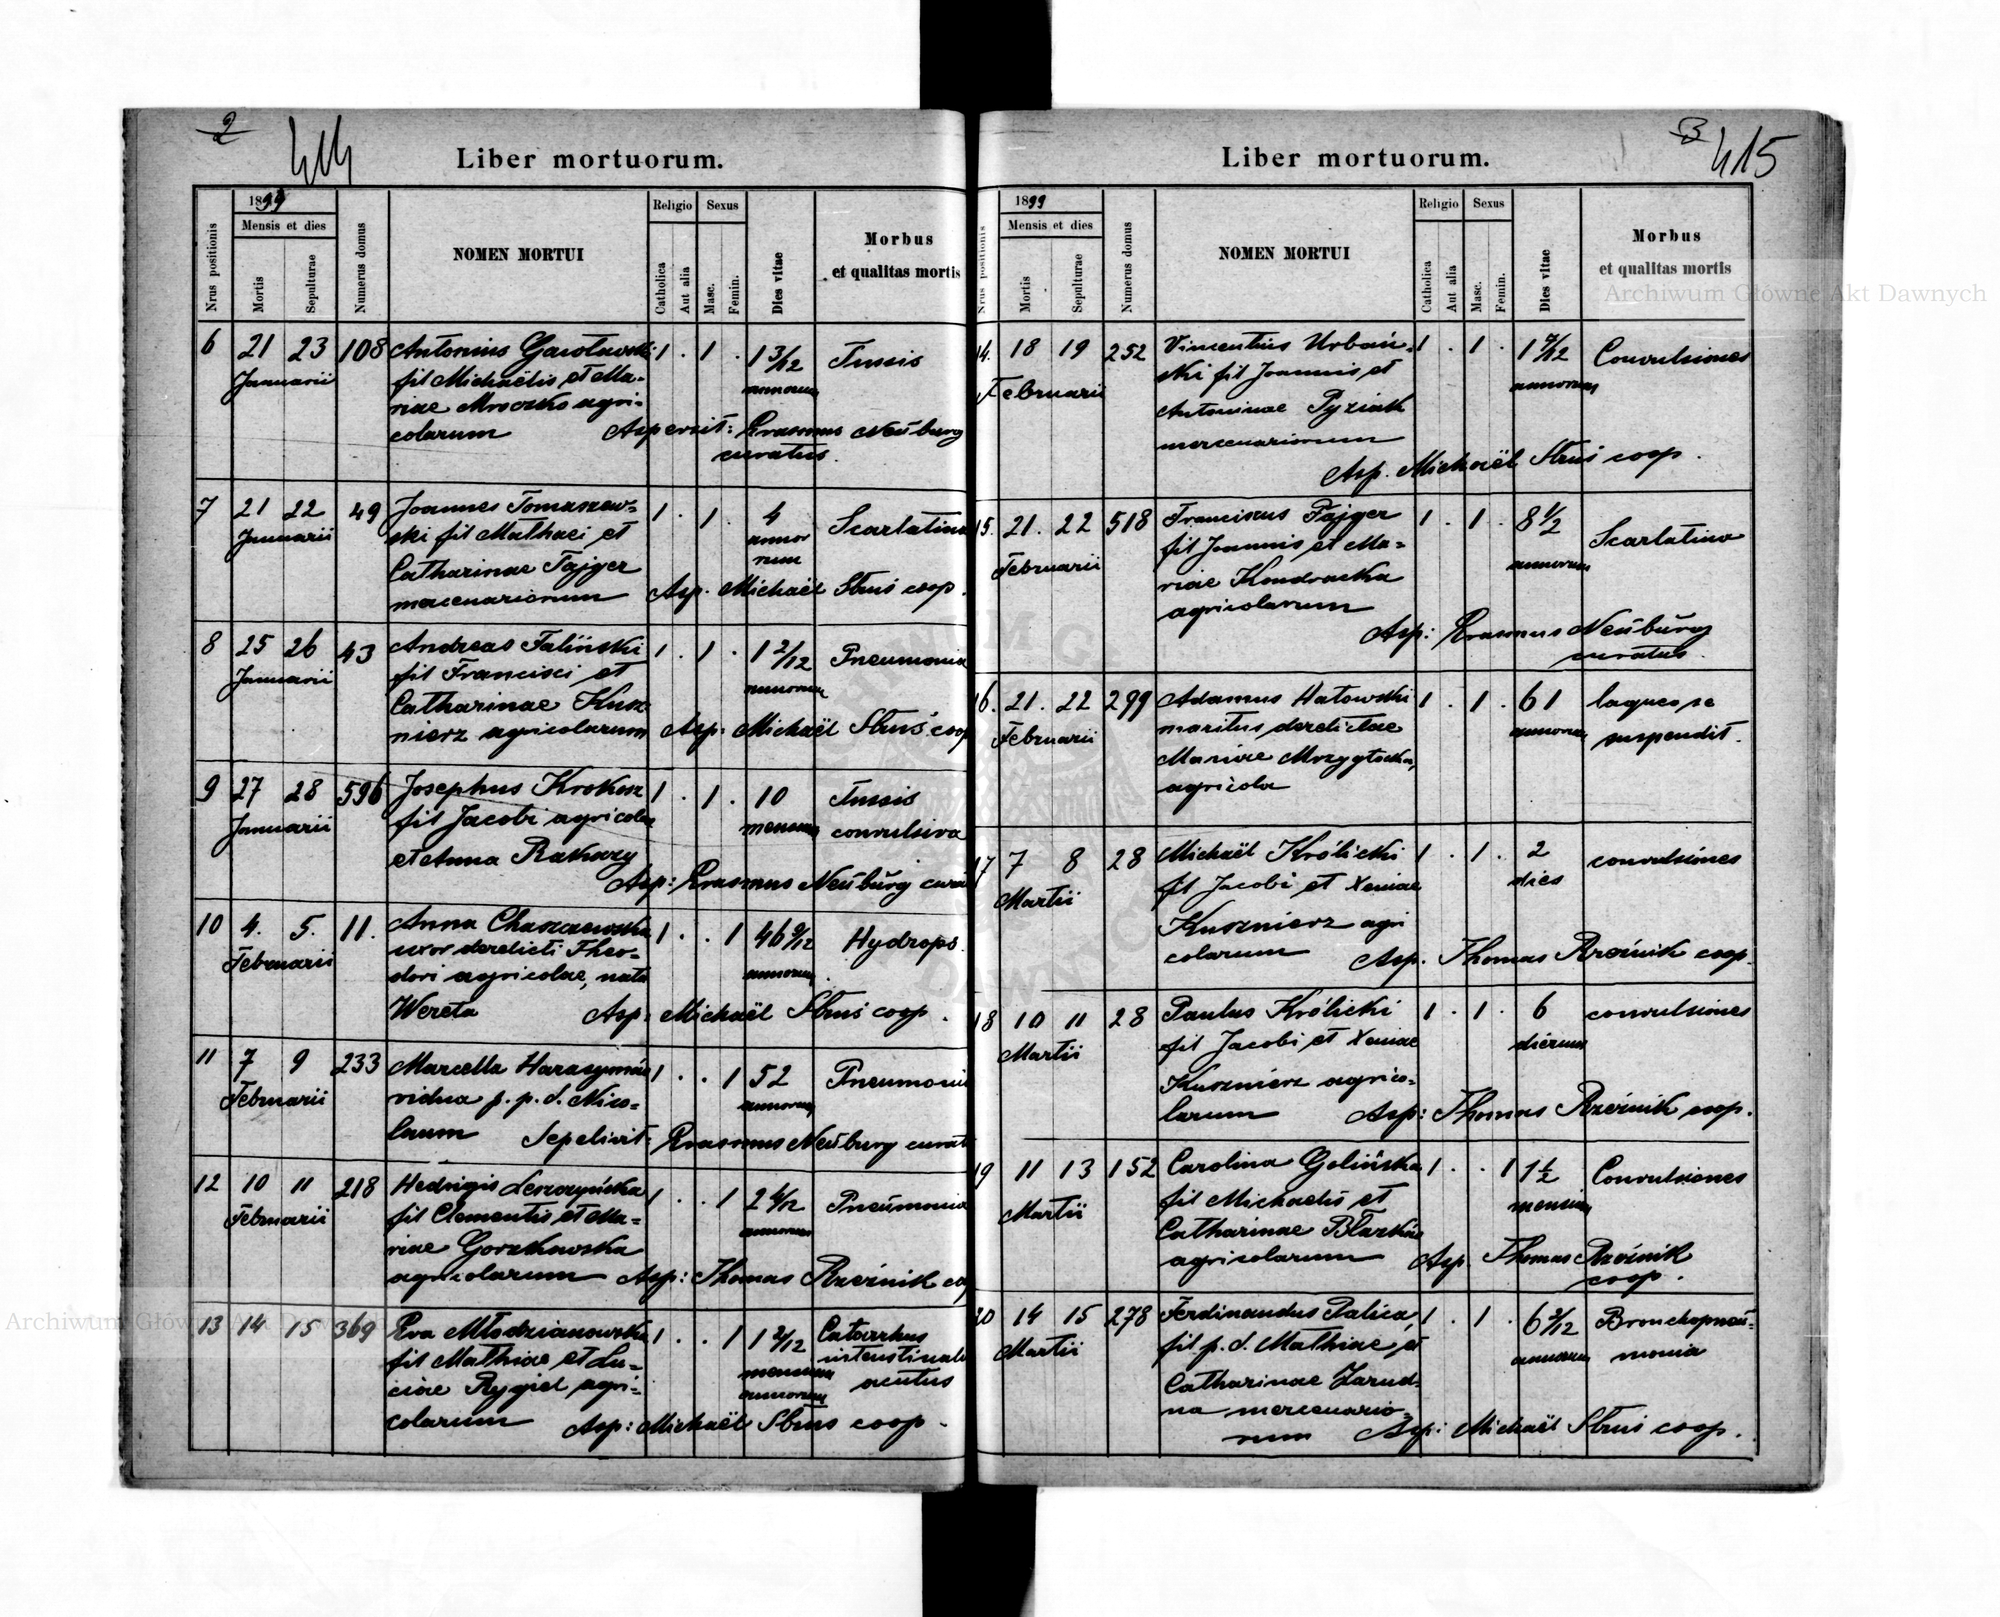 2
414
Liber mortuorum.
1899
Mensis et dies
Nrus positionis
Mortis
Sepulturae
Numerus domus
NOMEN MORTUI
Religio
Sexus
Catholica
Aut alia
Masc.
Femin.
Dies vitae
Morbus
et qualitas mortis
6 21 23 108 Antonius Gawłowski 1 . 1 . 1 3/12 Tussis
Januarii fil Michaëlis et Ma- annorum
riae Mroczko agri-
colarum Aspersit: Erasmus Neuburg
curatus.
7 21 22 49 Joannes Tomaszew- 1 . 1 . 4 Scarlatina
Januarii ski fil Mathaei et anno-
rum
Catharinae Fajger
mercenariorum Asp. Michaël Struś coop.
8 25 26 43 Andreas Taliński 1 . 1 . 1 2/12 Pneumonia
Januarii fil Francisci et annorum
Catharinae Kusz-
nierz agricolarum Asp: Michaël Struś coop
9 27 28 596 Josephus Krokosz 1 . 1 . 10 Tussis
Januarii fil Jacobi agricolae mensium convulsiva
et Anna Rakoczy
Asp: Erasmus Neuburg cura
10 4. 5. 11. Anna Chaszczewska 1 . . 1 46 9/12 Hydrops.
Februarii uxor derelicti Theo- annorum
dori agricolae, nata
Wereta Asp: Michaël Struś coop.
11 7 9 233 Marcella Harasymów 1 . . 1 52 Pneumonia
Februarii vidua p. p. d. Nico- annorum
laum Sepelivit: Erasmus Neuburg curat
12 10 11 218 Hedvigis Leszczyńska 1 . . 1 2 4/12 Pneumonia
Februarii fil Clementis et Ma- annorum
riae Gorzkowska
agricolarum Asp: Thomas Rzeźnik co
13 14 15 369 Eva Młodzianowska 1 . . 1 1 2/12 Catarrhus
fil Mathiae et Lu- mensium intenstinalis
ciae Rygiel agri- annorum acutus
colarum Asp: Michaël Struś coop.
3
415
Liber mortuorum.
1899
Mensis et dies
Nrus positionis
Mortis
Sepulturae
Numerus domus
NOMEN MORTUI
Religio
Sexus
Catholica
Aut alia
Masc.
Femin.
Dies vitae
Morbus
et qualitas mortis
14. 18 19 252 Vincentius Urbań- 1 . 1 . 1 7/12 Convulsiones
Februarii ski fil Joannis et annorum
Antoninae Pyziak
mercenariorum
Asp. Michaël Struś coop.
15. 21. 22 518 Franciscus Fajger 1 . 1 . 8 1/2 Scarlatina
Februarii fil Joannis et Ma- annorum
riae Kondracka
agricolarum
Asp: Erasmus Neuburg
curatus.
16. 21. 22 299 Adamus Hatowski 1 . 1 . 61 laqueo se
Februarii maritus derelictae annorum suspendit.
Mariae Mrzygłocka,
agricola
17 7 8 28 Michaël Królicki 1 . 1 . 2 convulsiones
Martii fil Jacobi et Xeniae dies
Kusznierz agri
colarum Asp. Thomas Rzeźnik coop.
18 10 11 28 Paulus Królicki 1 . 1 . 6 convulsiones
Martii fil Jacobi et Xeniae dierum
Kusznierz agrico-
larum Asp: Thomas Rzeźnik coop.
19 11 13 152 Carolina Golińska 1 . . 1 1 1/2 Convulsiones
Martii fil Michaelis et mensium
Catharinae
agricolarum Asp. Thomas Rzeźnik
coop.
20 14 15 278 Ferdinandus Palica, 1 . 1 . 6 2/12 Bronchopneu-
Martii fil p. d. Mathiae et annorum monia
Catharinae Zarud-
na mercenario-
rum Asp: Michaël Struś coop.
Archiwum Główne Akt Dawnych
Archiwum Główne Akt Dawnych